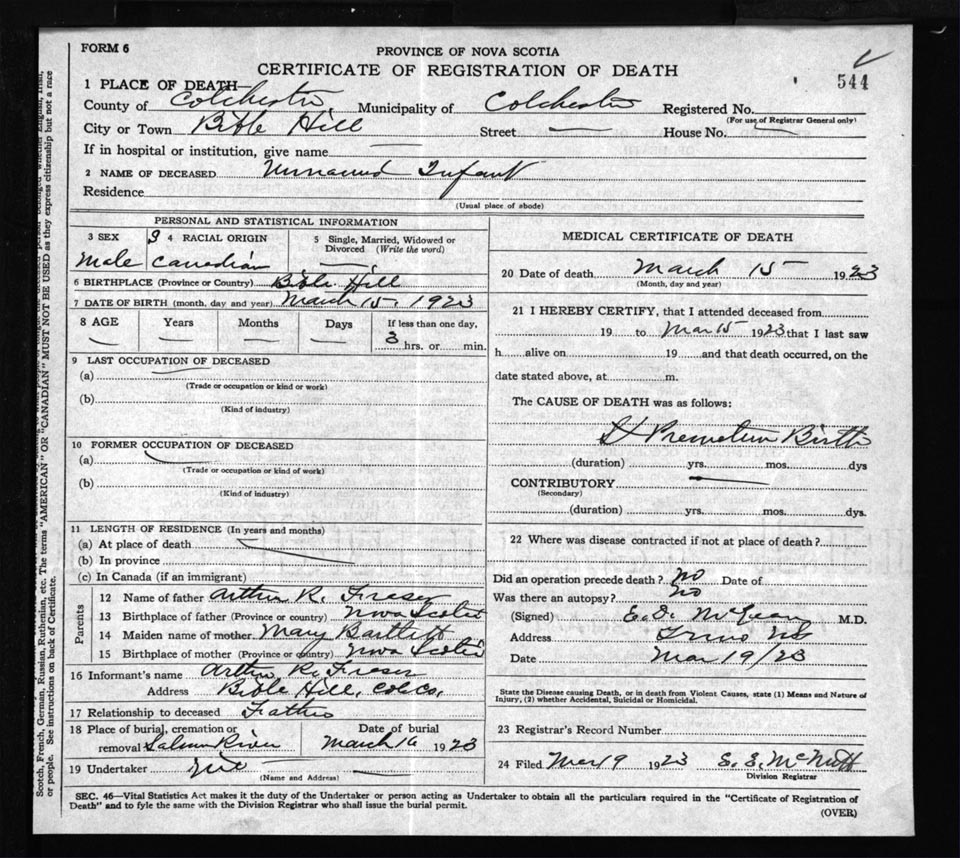 FORM 6
PROVINCE OF NOVA SCOTIA
CERTIFICATE OF REGISTRATION OF DEATH
544
1 PLACE OF DEATH—
County of Colchester, Municipality of Colchester Registered No.
(For use of Registrar General only)
City or Town Bible Hill Street — House No. —
If in hospital or institution, give name —
2 NAME OF DECEASED Unnamed Infant
Residence
(Usual place of abode)
PERSONAL AND STATISTICAL INFORMATION
3 SEX 4 RACIAL ORIGIN 5 Single, Married, Widowed or Divorced (Write the word)
Male Canadian —
6 BIRTHPLACE (Province or Country) Bible Hill
7 DATE OF BIRTH (month, day and year) March 15, 1923
8 AGE Years Months Days If less than one day,
— — — — 3 hrs. or min.
9 LAST OCCUPATION OF DECEASED
(a) —
(Trade or occupation or kind or work)
(b)
(Kind of industry)
10 FORMER OCCUPATION OF DECEASED
(a)
(Trade or occupation or kind of work)
(b)
(Kind of industry)
11 LENGTH OF RESIDENCE (In years and months)
(a) At place of death
(b) In province
(c) In Canada (if an immigrant)
Parents
12 Name of father Arthur R. Fraser
13 Birthplace of father (Province or Country) Nova Scotia
14 Maiden name of mother Mary Bartlett
15 Birthplace of mother (Province or country) Nova Scotia
16 Informant's name Arthur R. Fraser
Address Bible Hill, Col. Co.
17 Relationship to deceased Father
18 Place of burial, cremation or removal Salmon River
Date of burial March 16 1923
19 Undertaker
(Name and Address)
MEDICAL CERTIFICATE OF DEATH
20 Date of death March 15 1923
(Month, day and year)
21 I HEREBY CERTIFY, that I attended deceased from
19 to Mar 15 1923 that I last saw
h alive on 19 and that death occurred, on the
date stated above, at m.
The CAUSE OF DEATH was as follows:
Premature Birth
(duration) yrs. mos. dys
CONTRIBUTORY —
(Secondary)
(duration) yrs. mos. dys.
22 Where was disease contracted if not at place of death?
Did an operation precede death? No Date of
Was there an autopsy? No
(Signed) M.D.
Address Truro NS
Date Mar 19/23
State the Disease causing Death, or in death from Violent Causes, state (1) Means and Nature of
Injury, (2) whether Accidental, Suicidal or Homicidal.
23 Registrar's Record Number
24 Filed Mar 19 1923 S. S. McNutt
Division Registrar
SEC. 46—Vital Statistics Act makes it the duty of the Undertaker or person acting as Undertaker to obtain all the particulars required in the "Certificate of Registration of
Death" and to fyle the same with the Division Registrar who shall issue the burial permit.
(OVER)
Scotch, French, German, Russian, Ruthenian, etc. The terms "AMERICAN" OR "CANADIAN" MUST NOT BE USED as they express citizenship but not a race
or people. See instructions on back of Certificate.